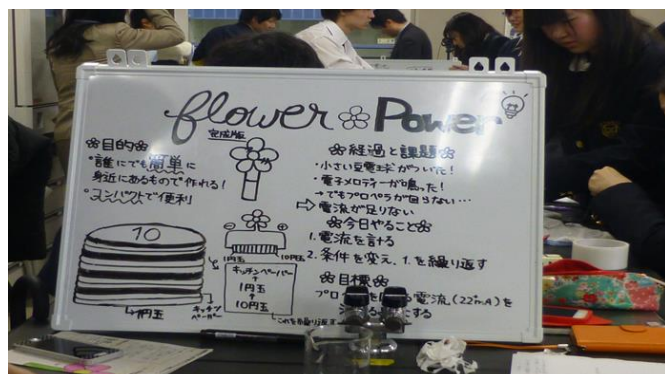 flower Power
完成版
❀目的❀
・誰にでも簡単に
身近にあるもので作れる!
・コンパクトで便利
10
→1円玉
キッチン
ペーパー
⊖ ⊕
1円玉 10円玉
キッチンペーパー
↑
1円玉
↑
10円玉
これを繰り返す
❀経過と課題❀
・小さい豆電球がついた!
・電子メロディーが鳴った!
→でもプロペラが回らない…
⇨電流が足りない
❀今日やること❀
1. 電流を計る
2. 条件を変え、1.を繰り返す
❀目標❀
プロ
電流(22mA)を
にする